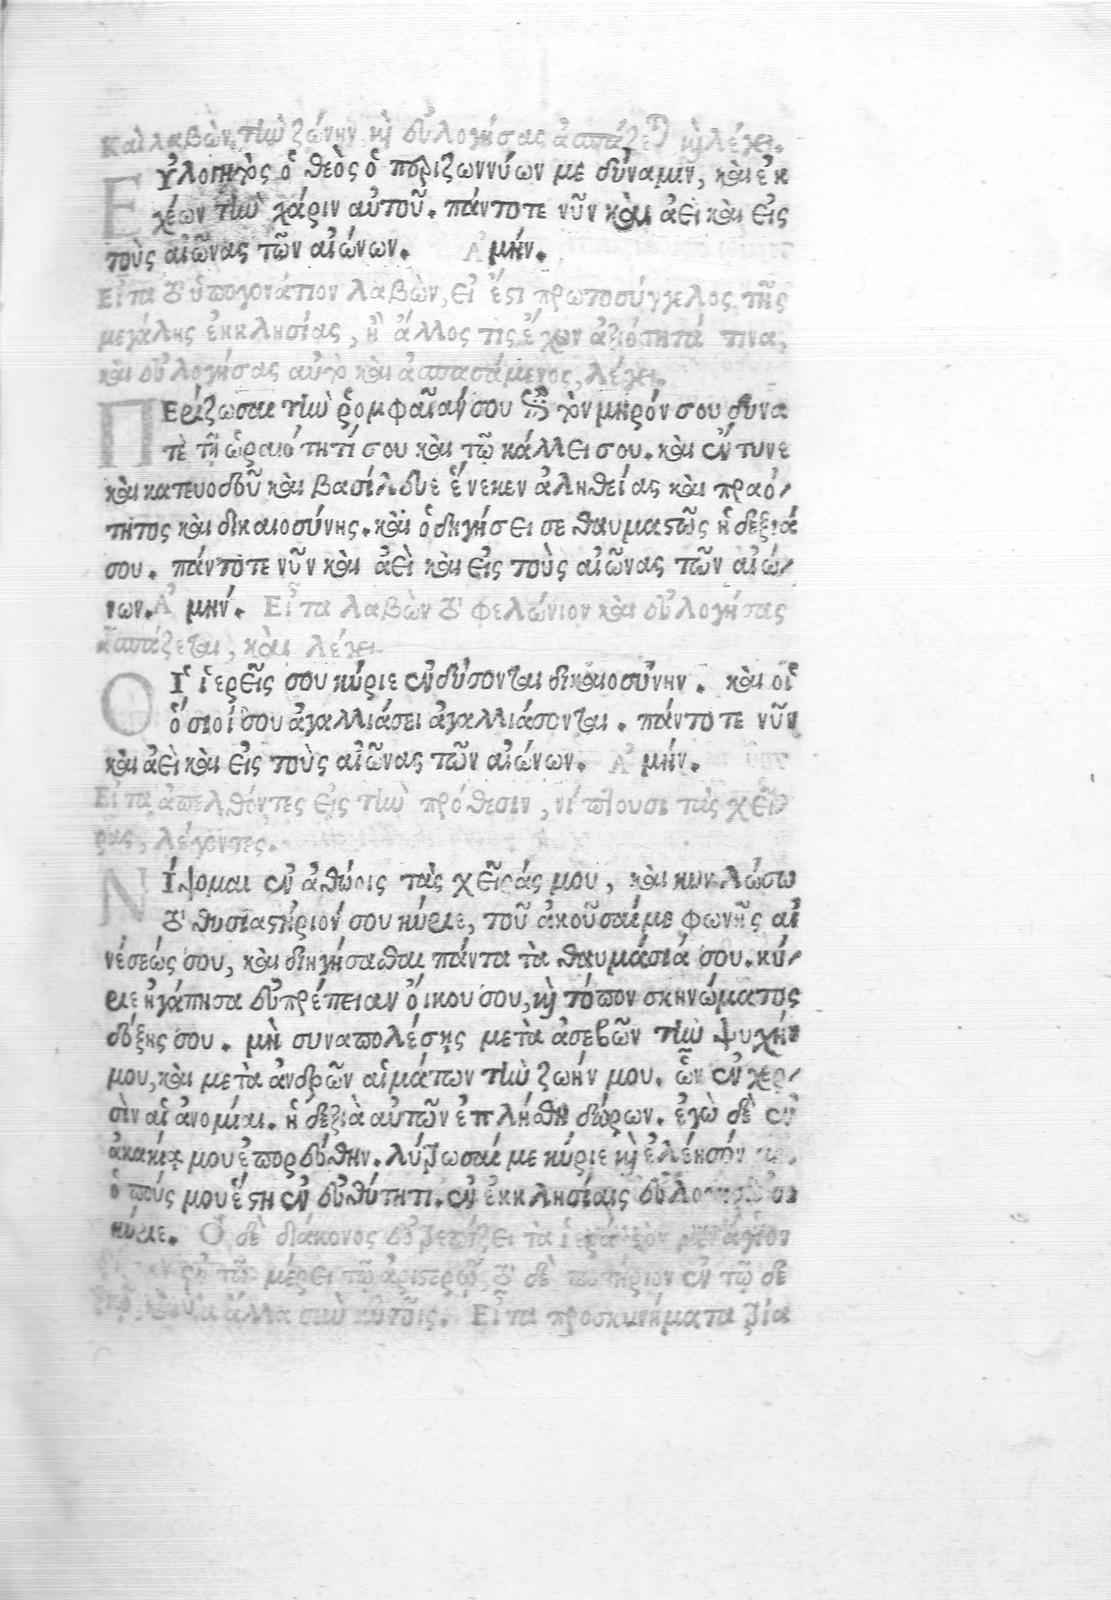 Καὶ λαβὼν τὴν ζώνην καὶ εὐλογήσας ἀσπάζεται καὶ λέγει.
Εὐλογητὸς ὁ θεὸς ὁ περιζωννύων με δύναμιν, καὶ ἐκ
χέων τὴν χάριν αὐτοῦ. πάντοτε νῦν καὶ ἀεὶ καὶ εἰς
τοὺς αἰῶνας τῶν αἰώνων. Ἀμήν.
Εἶτα τὸ ὑπογονάτιον λαβὼν, εἰ ἔστι πρωτοσύγκελος τῆς
μεγάλης ἐκκλησίας, ἢ ἄλλος τις ἔχων ἀξιότητά τινα,
καὶ εὐλογήσας αὐτὸ καὶ ἀσπασάμενος, λέγει.
Περίζωσαι τὴν ῥομφαῖαν σου ἐπὶ τὸν μηρόν σου δυνα
τὲ τῇ ὡραιότητί σου καὶ τῷ κάλλει σου. καὶ ἔντυνε
καὶ κατευοδοῦ καὶ βασίλευε ἕνεκεν ἀληθείας καὶ πραό/
τητος καὶ δικαιοσύνης. καὶ ὁδηγήσει σε θαυμαστῶς ἡ δεξιά
σου. πάντοτε νῦν καὶ ἀεὶ καὶ εἰς τοὺς αἰῶνας τῶν αἰώ/
νων. Ἀμήν. Εἶτα λαβὼν τὸ φελώνιον καὶ εὐλογήσας
ἀσπάζεται, καὶ λέγει
Οἱ ἱερεῖς σου κύριε ἐνδύσονται δικαιοσύνην. καὶ οἱ
ὅσιοί σου ἀγαλλιάσει ἀγαλλιάσονται. πάντοτε νῦν
καὶ ἀεὶ καὶ εἰς τοὺς αἰῶνας τῶν αἰώνων. Ἀμήν.
Εἶτα ἀπελθόντες εἰς τὴν πρόθεσιν, νίπτουσι τὰς χεῖ
ρας, λέγοντες.
Νίψομαι ἐν ἀθώοις τὰς χεῖράς μου, καὶ κυκλώσω
τὸ θυσιαστήριόν σου κύριε, τοῦ ἀκοῦσαί με φωνῆς αἰ
νέσεώς σου, καὶ διηγήσασθαι πάντα τὰ θαυμάσιά σου. κύ/
ριε ἠγάπησα εὐπρέπειαν οἴκου σου, καὶ τόπον σκηνώματος
δόξης σου. μὴ συναπολέσῃς μετὰ ἀσεβῶν τὴν ψυχήν
μου, καὶ μετὰ ἀνδρῶν αἱμάτων τὴν ζωήν μου. ὧν ἐν χερ/
σὶν αἱ ἀνομίαι. ἡ δεξιὰ αὐτῶν ἐπλήθη δώρων. ἐγὼ δὲ ἐν
ἀκακίᾳ μου ἐπορεύθην. λύτρωσαί με κύριε καὶ ἐλέησόν
ὁ πούς μου ἔστη ἐν εὐθύτητι. ἐν ἐκκλησίαις εὐλογήσω σε
κύριε. Ὁ δὲ διάκονος εὐτρεπίζει τὰ ἱερά. τὸν μὲν ἅγιον
ἐν τῷ μέρει τῷ ἀριστερῷ, τὸ δὲ ποτήριον ἐν τῷ δε
ξιῷ, καὶ τὰ ἄλλα σὺν αὐτοῖς. Εἶτα προσκυνήματα τρία